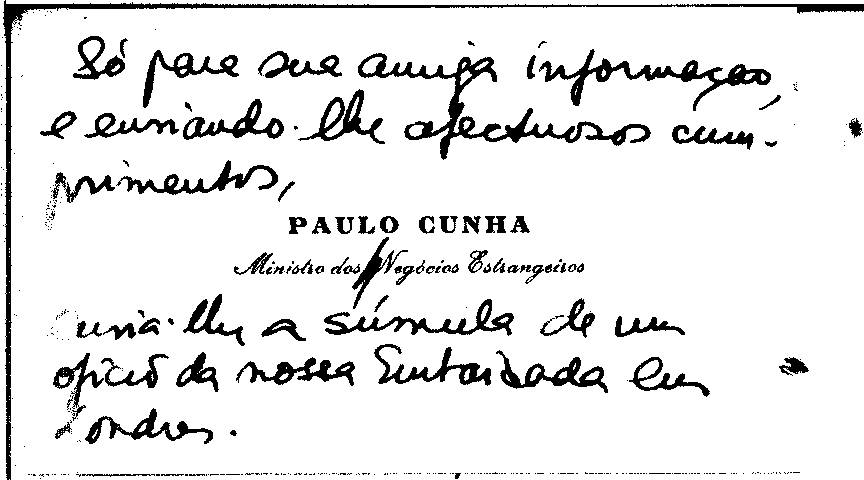 Só para sua amiga informação,
e enviando-lhe afectuosos cum-
primentos,
PAULO CUNHA
Ministro dos Negócios Estrangeiros
envia-lhe a súmula de um
ofício da nossa Embaixada em
Londres.